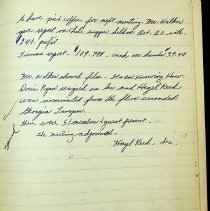 to have pot luck for next meeting. Mr. Walker
gave report on Chili supper held on Oct. 20. with
$34. profit.
Treasurer report. $109.788. cash on hand 37.40
Mr. Walker showed film. It's on Knowing How.
Doris Ryan resigned as Sec and Hazel Reed
was nominated from the floor seconded
Georgia
There were 9 members 1 guest present.
The meeting adjourned.
Hazel Reed. Sec.